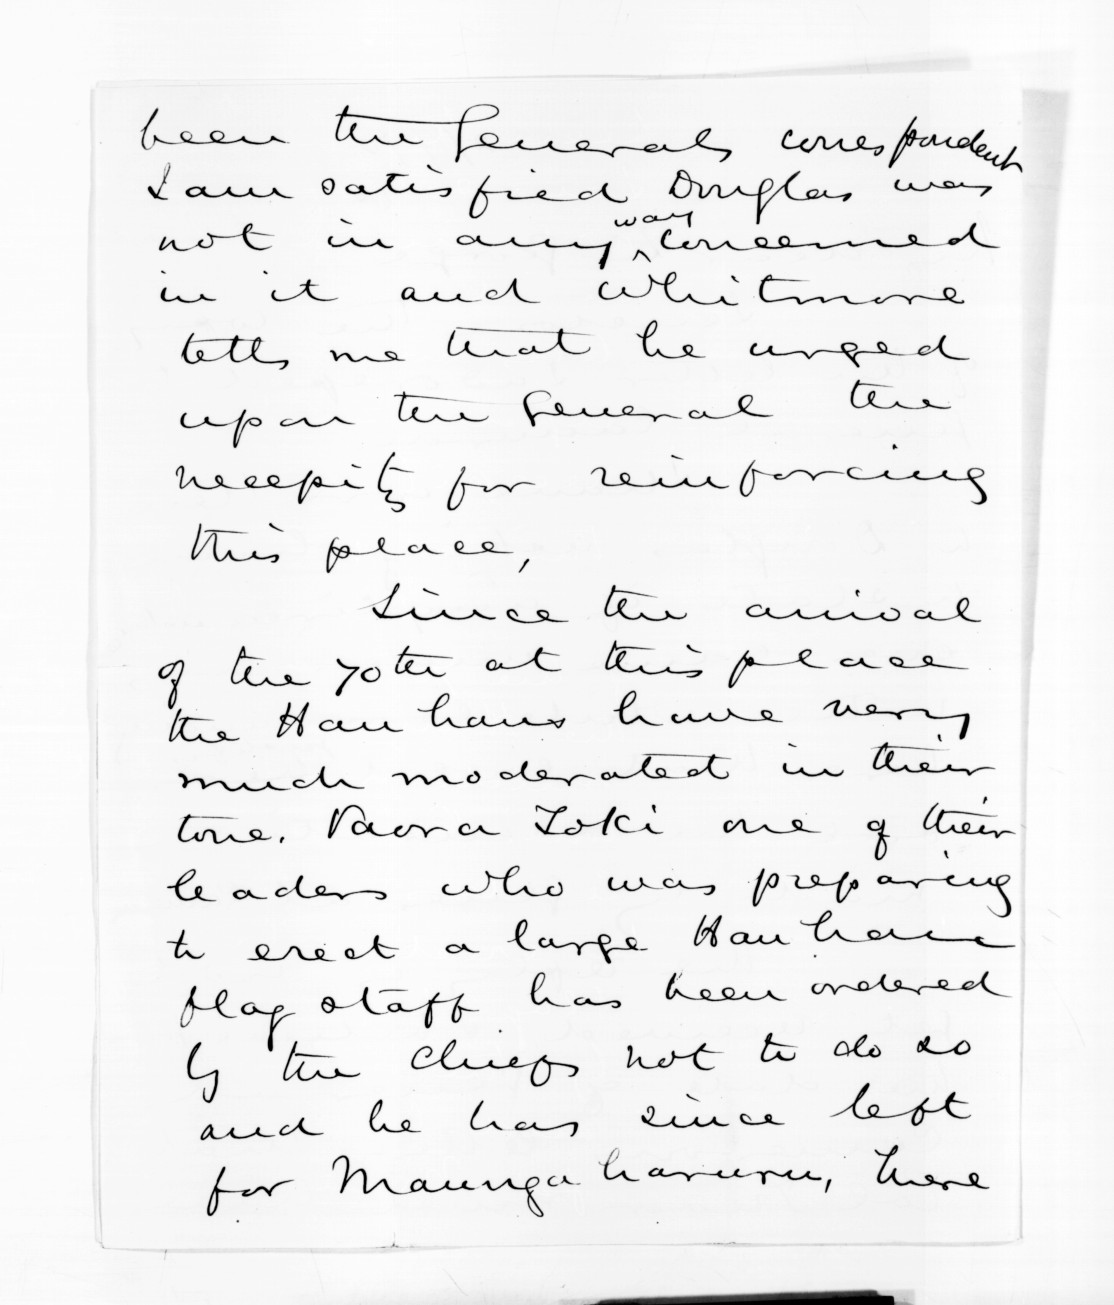 been the Generals correspondent
I am satisfied Douglas was
not in any way concerned
in it and Whitmore
tells me that he urged
upon the General the
necessity for reinforcing
this place,
Since the arrival
of the 70th at this place
the Hau haus have very
much moderated in their
tone. Paora Toki one of their
leaders who was preparing
to erect a large Hau hau
flag staff has been ordered
by the Chiefs not to do so
and he has since left
for Maunga haruru, there